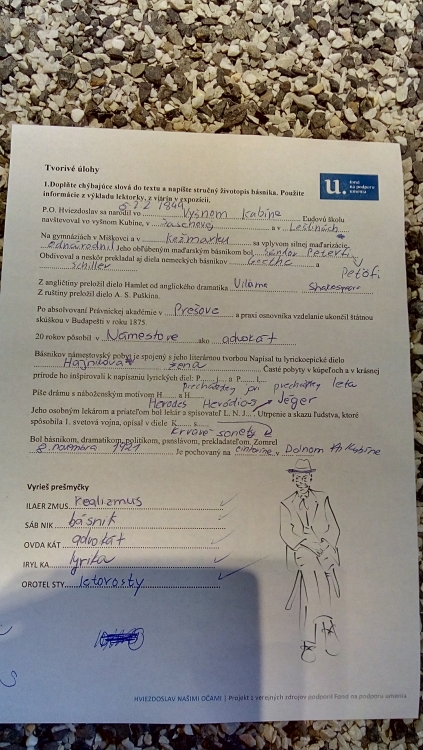 Tvorivé úlohy
u. fond na podporu umenia
1.Doplňte chýbajúce slová do textu a napíšte stručný životopis básnika. Použite
informácie z výkladu lektorky, z vitrín v expozícii.
P.O. Hviezdoslav sa narodil vo 2.2. 1849 Vyšnom Kubíne Ľudovú školu
navštevoval vo vyšnom Kubíne, v Jasenovej a v Leštinách
Na gymnáziách v Miškovci a v Kežmarku sa vplyvom silnej maďarizácie
odnárodnil Jeho obľúbeným maďarským básnikom bol Petöfi
Obdivoval a neskôr prekladal aj diela nemeckých básnikov Goethe a
Schiller
Z angličtiny preložil dielo Hamlet od anglického dramatika Viliama Shakespear
Z ruštiny preložil dielo A. S. Puškina.
Po absolvovaní Právnickej akadémie v Prešove a praxi osnovníka vzdelanie ukončil štátnou
skúškou v Budapešti v roku 1875.
20 rokov pôsobil v Námestove ako advokát
Básnikov námestovský pobyt je spojený s jeho literárnou tvorbou Napísal tu lyrickoepické dielo
Hájnikova žena Časté pobyty v kúpeľoch a v krásnej
prírode ho inšpirovali k napísaniu lyrických diel: P...... a P...... l......
prechádzky prechádzky leta
Píše drámu s náboženským motívom H...... a H......
Herodes Herodias Jéger
Jeho osobným lekárom a priateľom bol lekár a spisovateľ L. N. J... Utrpenie a skazu ľudstva, ktoré
spôsobila 1. svetová vojna, opísal v diele K......
Krvavé sonety
Bol básnikom, dramatikom, politikom, panslávom, prekladateľom. Zomrel
8. novembra 1921 Je pochovaný na cintoríne v Dolnom Kubíne
Vyrieš prešmyčky
ILAER ZMUS realizmus
SÁB NIK básnik
OVDA KÁT advokát
IRYL KA lyrika
OROTEL STY letorosty
HVIEZDOSLAV NAŠIMI OČAMI | Projekt z verejných zdrojov podporil Fond na podporu umenia